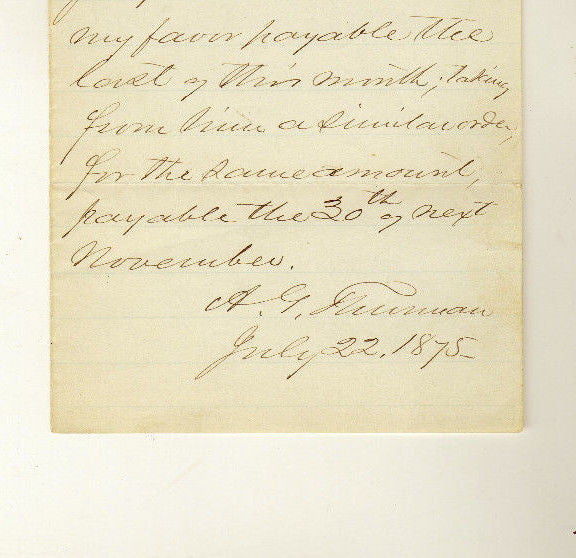 my favor payable the
last of this month, taking
from him a similar order,
for the same amount,
payable the 30th of next
November.
A. G. Thurman
July 22, 1875